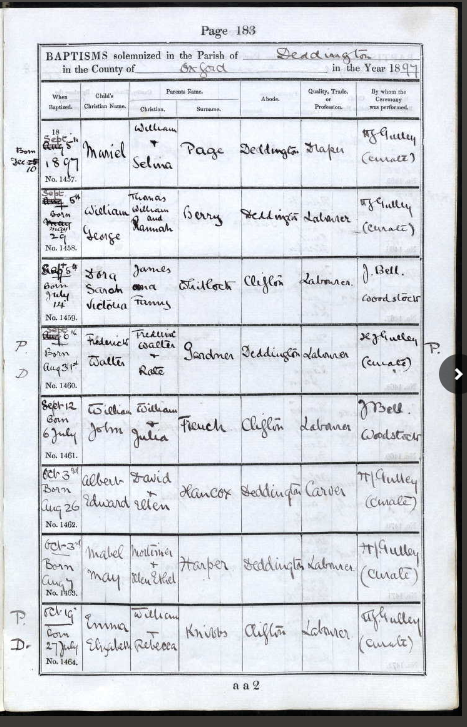 Page 183
BAPTISMS solemnized in the Parish of Deddington
in the County of Oxford in the Year 1897
When Baptized. Child's Christian Name. Parents Name. Christian. Surname. Abode. Quality, Trade, or Profession. By whom the Ceremony was performed.
Born 18 Sept 1897 No. 1457. Muriel William + Selina Page Deddington Draper HJ Gulley (curate)
Sept 5th Born May 29 No. 1458. William George Thomas William and Hannah Berry Deddington Labourer HJ Gulley (curate)
Sept 5th Born July 14 No. 1459. Dora Sarah Victoria James and Fanny Whitlock Clifton Labourer J. Bell. Woodstock
P. D Sept Born Aug 31st No. 1460. Frederick Walter Frederic Walter + Kate Gardner Deddington Labourer HJ Gulley (curate) P.
Sept 12 Born 6 July No. 1461. William John William + Julia French Clifton Labourer J Bell. Woodstock
Oct 3rd Born Aug 26 No. 1462. Albert Edward David + Ellen Hancox Deddington Carver HJ Gulley (curate)
Oct 3rd Born Aug 7 No. 1463. Mabel May Mortimer + Ellen Ethel Harper Deddington Labourer HJ Gulley (curate)
P. D. Oct 19 Born 27 July No. 1464. Emma Elizabeth William + Rebecca Knibbs Clifton Labourer HJ Gulley (curate)
a a 2